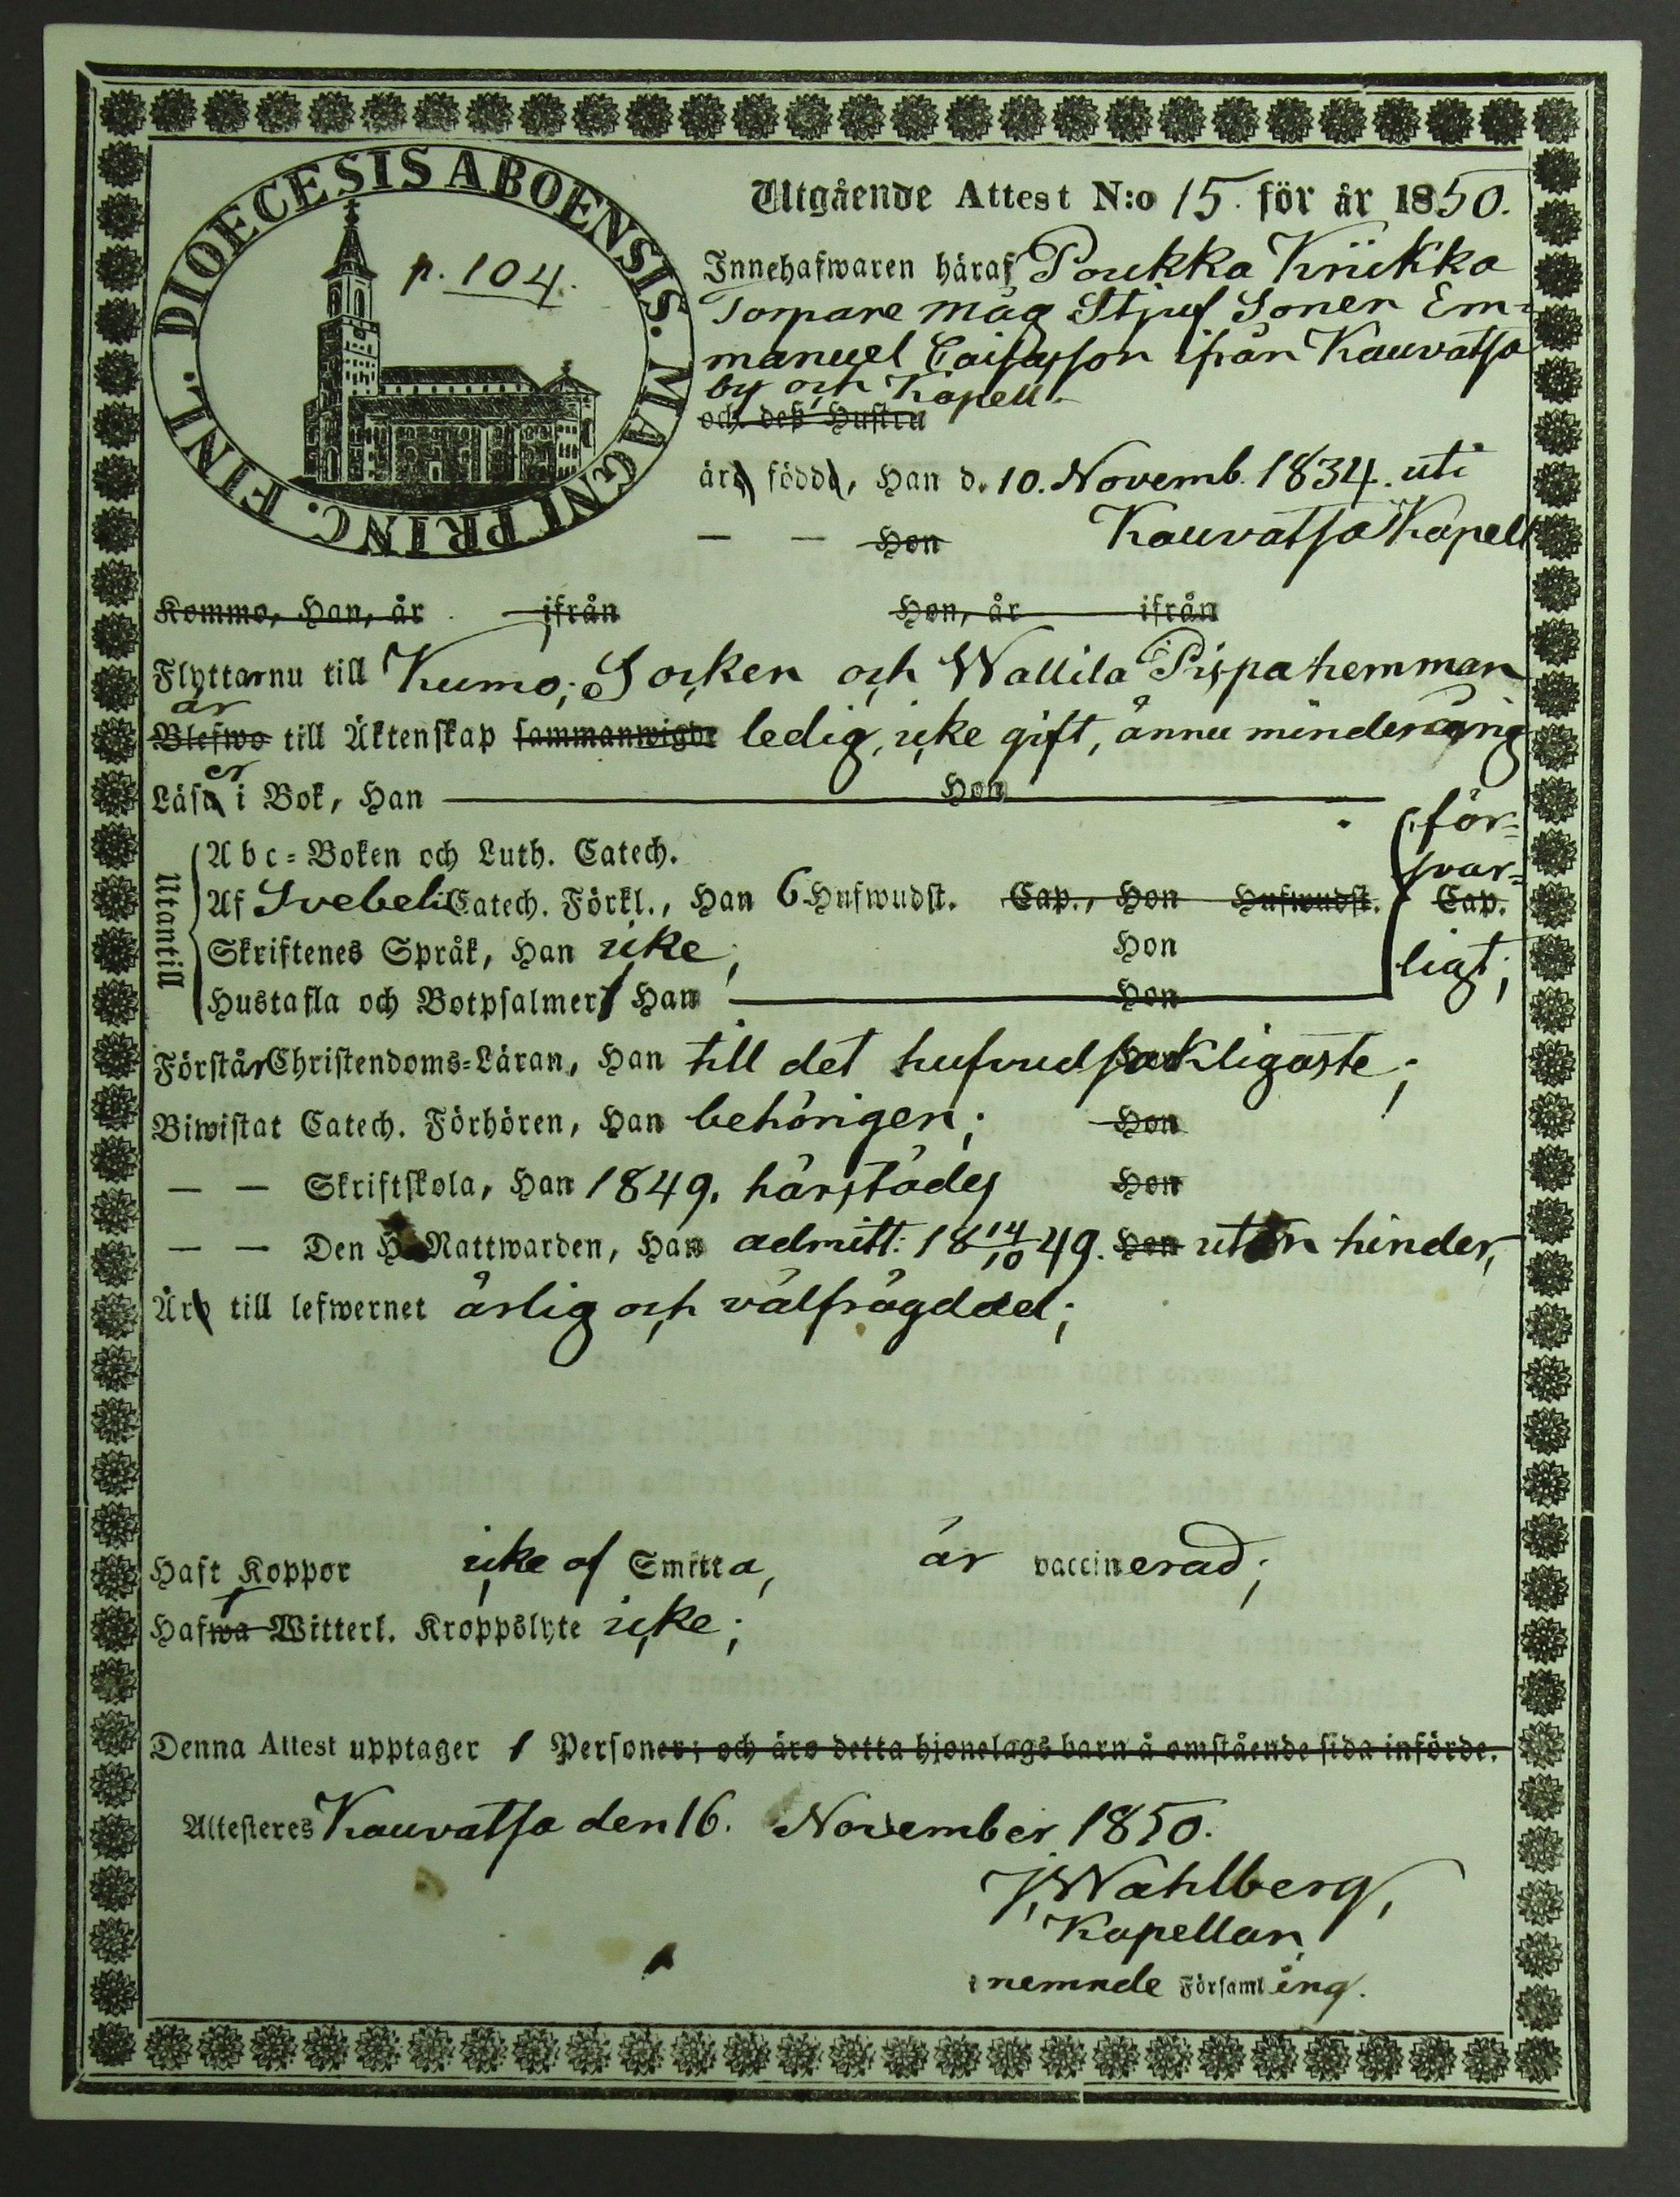 DIOECESIS ABOENSIS. MAGNI PRINC. FINL.
p. 104.
Utgående Attest N:o 15. för år 1850.
Innehafwaren häraf Poukka Krükka
Torpare måg Stjuf Sonen Em=
manuel ifrån Kauvatsa
by och Kapell.
och deß Hustru
äro födde, Han d. 10. Novemb. 1834. uti
— — Hon Kauvatsa Kapell
Komme, Han, år ifrån Hon, år ifrån
Flyttar nu till Kumo, Socken och Wallila Pispa hemman
är
Blefwo till Äktenskap sammanwigde ledig, icke gift, ännu minderårig
er
Läsa i Bok, Han Hon
för=
Abc=Boken och Luth. Catech.
svar=
Utantill
Af Svebeli Catech. Förkl., Han 6 Hufwudst. Cap., Hon Hufwudst. Cap.
Skriftenes Språk, Han icke; Hon ligt;
Hustafla och Botpsalmer, Han Hon
Förstår Christendoms=Läran, Han till det hufvudsakligaste;
Biwistat Catech. Förhören, Han behörigen; Hon
— — Skriftskola, Han 1849. härstädes Hon
— — Den H. Nattwarden, Han admitt: 18 14/10 49. Hon utan hinder,
Äro till lefwernet ärlig och välfrägdad;
Haft Koppor icke af Smitta, är vaccinerad;
Hafwa Witterl. Kroppslyte icke;
Denna Attest upptager 1 Personer; och äro detta hjonelags barn å omstående sida införde.
Attesteres Kauvatsa den 16. November 1850.
J. Wahlberg,
Kapellan
i nemnde Församling.